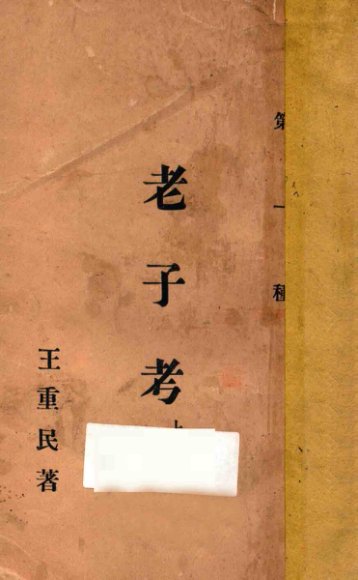 第一種
老子考
上
王重民著